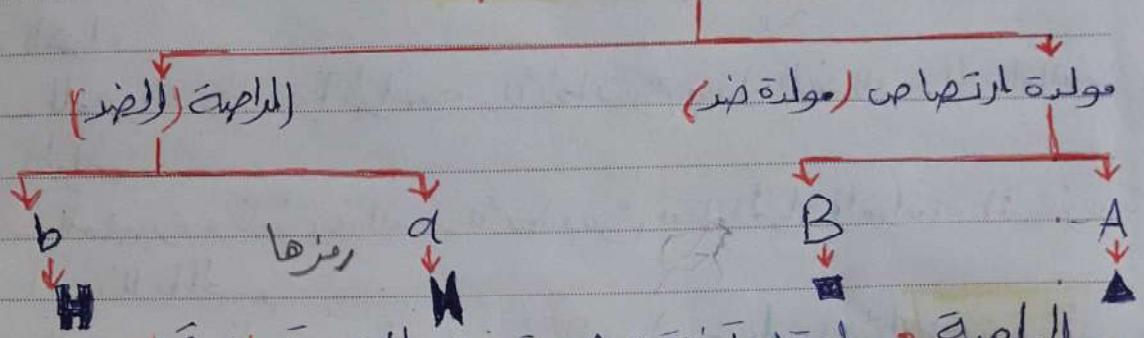 مولدة ارتصاص (مولدة ضد) الراصة (الضد)
A B a رمزها b
الراصة